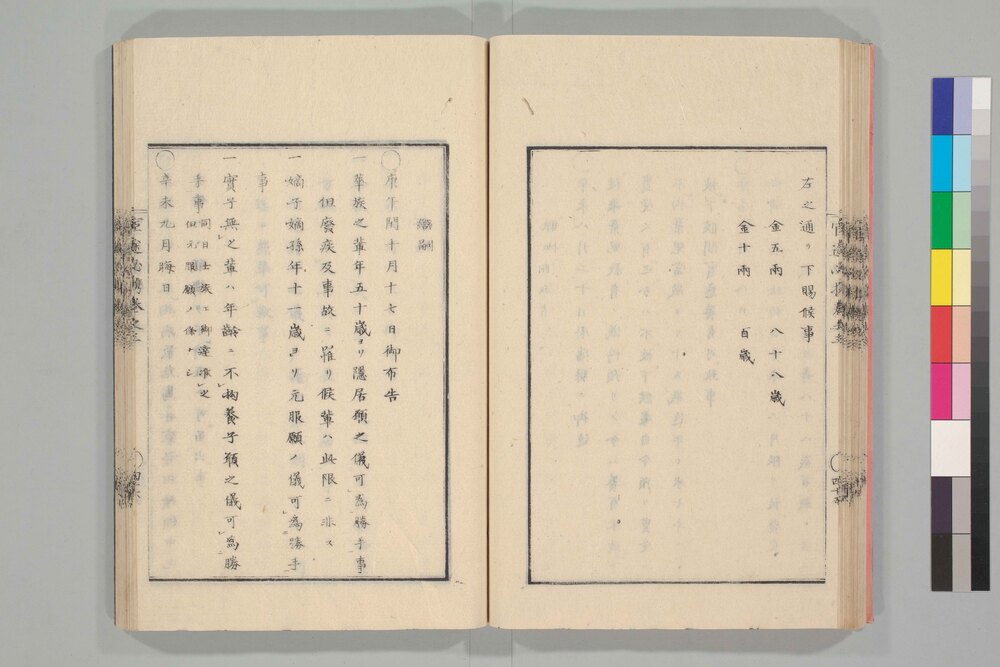 左之通リ下賜候事
金五兩　八十八歳
金十兩　百歳
繼嗣
〇庚午閏十月十七日御布告
一華族之輩年五十歳ヨリ隱居願之儀可為勝手事
但廢疾及事故ニ罹リ候輩ハ此限ニ非ス
一嫡子嫡孫年十一歳ヨリ元服願ノ儀可為勝手
事
一實子無之輩ハ年齡ニ不拘養子願之儀可為勝
手事
同日士族江御達准之
但元服願ノ條ナシ
〇辛未九月晦日